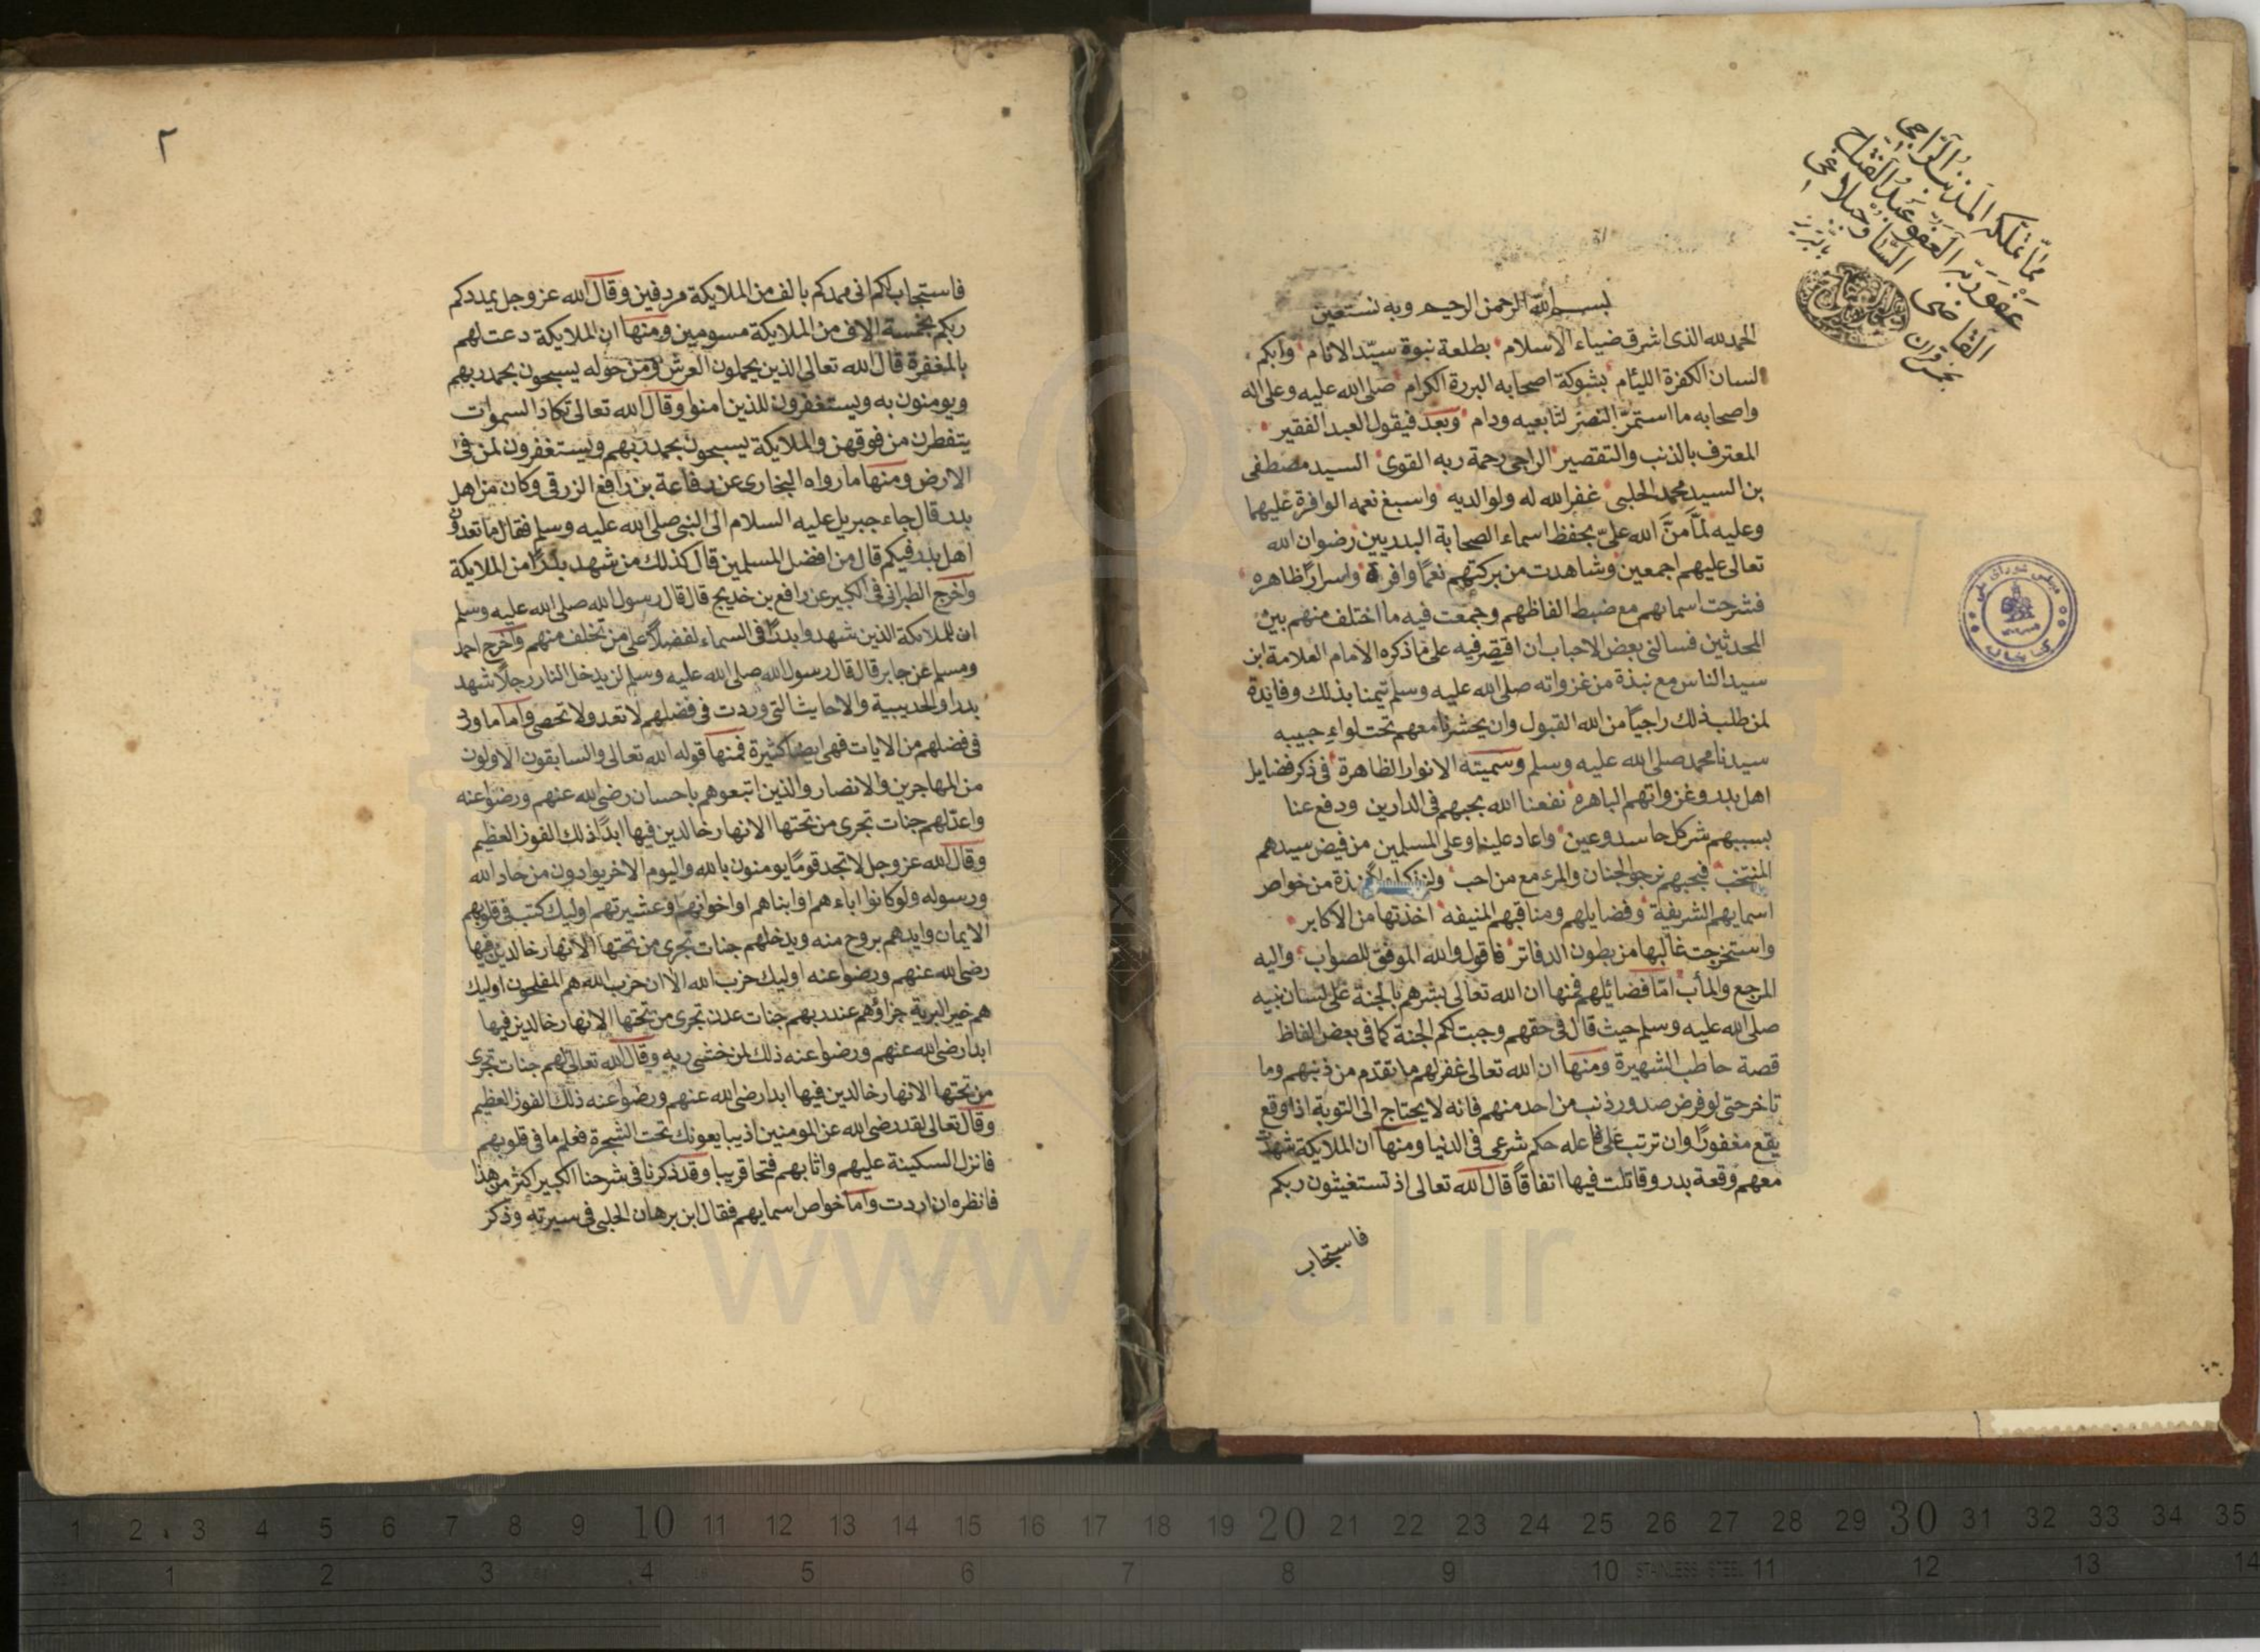 مما تملكه المذنب الراجي
عفو ربه الغفور عبد الفتاح
القاضي
بسم الله الرحمن الرحيم وبه نستعين
الحمد لله الذي اشرق ضياء الاسلام بطلعة نبوة سيّد الانام وابكم
لسان الكفرة الليئام بشوكة اصحابه البررة الكرام صلى الله عليه وعلى اله
واصحابه ما استمرّ النصر لتابعيه ودام وبعد فيقول العبد الفقير
المعترف بالذنب والتقصير الراجي رحمة ربه القوى السيد مصطفى
بن السيد محمد الحلبى غفر الله له ولوالديه واسبغ نعمه الوافرة عليهما
وعليه لمّا منَّ الله علىّ بحفظ اسماء الصحابة البدريين رضوان الله
تعالى عليهم اجمعين وشاهدت من بركتهم نعمًا وافرة واسرارًا ظاهره
فشرحت اسمايهم مع ضبط الفاظهم وجمعت فيه ما اختلف منهم بين
المحدثين فسالنى بعض الاحباب ان اقتصر فيه على ما ذكره الامام العلامة ابن
سيد الناس مع نبذة من غزواته صلى الله عليه وسلم تيمنا بذلك وفائدة
لمن طلب ذلك راجيًا من الله القبول وان يحشرنا معهم تحت لواء حبيبه
سيدنا محمد صلى الله عليه وسلم وسميته الانوار الظاهرة فى ذكر فضايل
اهل بدر وغزواتهم الباهره نفعنا الله بحبهم فى الدارين ودفع عنا
بسببهم شر كل حاسد وعين واعاد علينا وعلى المسلمين من فيض سيدهم
المنتخب فبحبهم نرجو الجنان والمرء مع من احب نبذة من خواص
اسمايهم الشريفة وفضايلهم ومناقبهم المنيفه اخذتها من الاكابر
واستخرجت غالبها من بطون الدفاتر فاقول والله الموفق للصواب واليه
المرجع والمأب امّا فضائلهم فمنها ان الله تعالى بشرهم بالجنة على لسان نبيه
صلى الله عليه وسلم حيث قال فى حقهم وجبت لكم الجنة كما فى بعض الفاظ
قصة حاطب الشهيرة ومنها ان الله تعالى غفر لهم ما تقدم من ذنبهم وما
تاخر حتى لو فرض صدور ذنب من احد منهم فانه لا يحتاج الى التوبة اذا وقع
يقع مغفورًا وان ترتب على فاعله حكم شرعى فى الدنيا ومنها ان الملايكة شهدت
معهم وقعة بدر وقاتلت فيها اتفاقًا قال الله تعالى اذ تستغيثون ربكم
فاستجاب
٢
فاستجاب لكم انى ممدكم بالف من الملايكة مردفين وقال الله عز وجل يمددكم
ربكم بخمسة الاف من الملايكة مسومين ومنها ان الملايكة دعت لهم
بالمغفرة قال الله تعالى الذين يحملون العرش ومن حوله يسبحون بحمد ربهم
ويومنون به ويستغفرون للذين امنوا وقال الله تعالى تكاد السموات
يتفطرن من فوقهن والملايكة يسبحون بحمد ربهم ويستغفرون لمن فى
الارض ومنها ما رواه البخارى عن رفاعة بن رافع الزرقى وكان من اهل
بدر قال جاء جبريل عليه السلام الى النبى صلى الله عليه وسلم فقال ما تعدون
اهل بدر فيكم قال من افضل المسلمين قال كذلك من شهد بدرًا من الملايكة
واخرج الطبرانى فى الكبير عن رافع بن خديج قال قال رسول الله صلى الله عليه وسلم
ان للملايكة الذين شهدوا بدرًا فى السماء لفضلًا على من تخلف منهم واخرج احمد
ومسلم عن جابر قال قال رسول الله صلى الله عليه وسلم لن يدخل النار رجلًا شهد
بدرا والحديبية والاحاديث التى وردت فى فضلهم لا تعد ولا تحصى واما ما ورد
فى فضلهم من الايات فهى ايضًا كثيرة فمنها قوله الله تعالى والسابقون الاولون
من المهاجرين والانصار والذين اتبعوهم باحسان رضى الله عنهم ورضوا عنه
واعدّ لهم جنات تجرى من تحتها الانهار خالدين فيها ابدًا ذلك الفوز العظيم
وقال الله عز وجل لا تجد قومًا يومنون بالله واليوم الاخر يوادون من حاد الله
ورسوله ولو كانوا اباءهم او ابناهم او اخوانهم او عشيرتهم اوليك كتب فى قلوبهم
الايمان وايدهم بروح منه ويدخلهم جنات تجرى من تحتها الانهار خالدين فيها
رضى الله عنهم ورضوا عنه اوليك حزب الله الا ان حزب الله هم المفلحون اوليك
هم خير البرية جزاؤهم عند ربهم جنات عدن تجرى من تحتها الانهار خالدين فيها
ابدا رضى الله عنهم ورضوا عنه ذلك لمن خشى ربه وقال الله تعالى لهم جنات تجرى
من تحتها الانهار خالدين فيها ابدا رضى الله عنهم ورضوا عنه ذلك الفوز العظيم
وقال تعالى لقد رضى الله عن المومنين اذ يبايعونك تحت الشجرة فعلم ما فى قلوبهم
فانزل السكينة عليهم واثابهم فتحا قريبا وقد ذكرنا فى شرحنا الكبير اكثر من هذا
فانظره ان اردت واما خواص اسمايهم فقال ابن برهان الحلبى فى سيرته وذكر
www.ical.ir